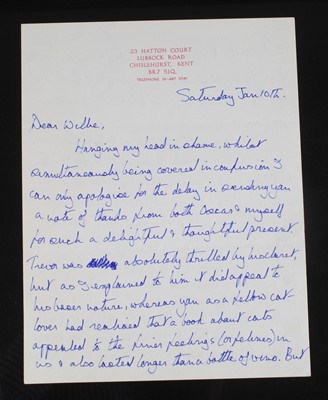 23 HATTON COURT
LUBBOCK ROAD
CHISLEHURST, KENT
BR7 5JQ.
TELEPHONE
Saturday Jan 10th.
Dear Willie,
Hanging my head in shame, whilst
simultaneously being covered in confusion I
can only apologise for the delay in sending you
a note of thanks from both Oscar & myself
for such a delightful & thoughtful present
Trevor was absolutely thrilled by his claret,
but as I explained to him it did appeal to
his baser nature, whereas you as a fellow cat-
lover had realised that a book about cats
appealed to the finer feelings (or felines) in
us & also lasted longer than a bottle of vino. But